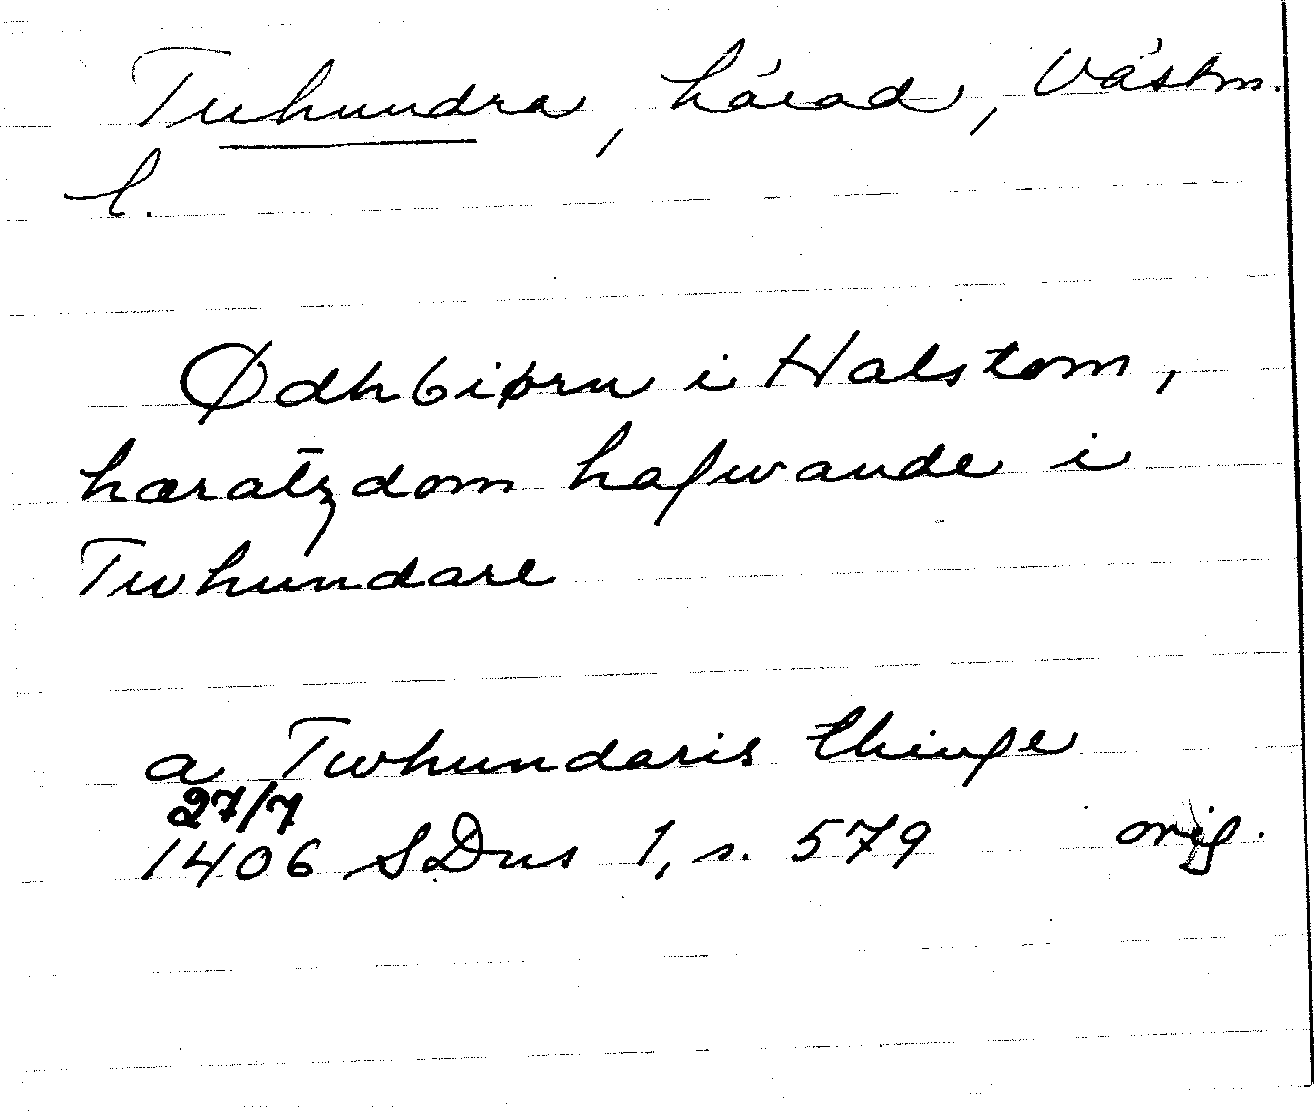 Tuhundra, härad, Västm.
l.
Ødhbiørn i Halstom,
hæratzdom hafwande i
Twhundare
a Twhundaris thinge
27/7
1406 SDns 1, s. 579 orig.